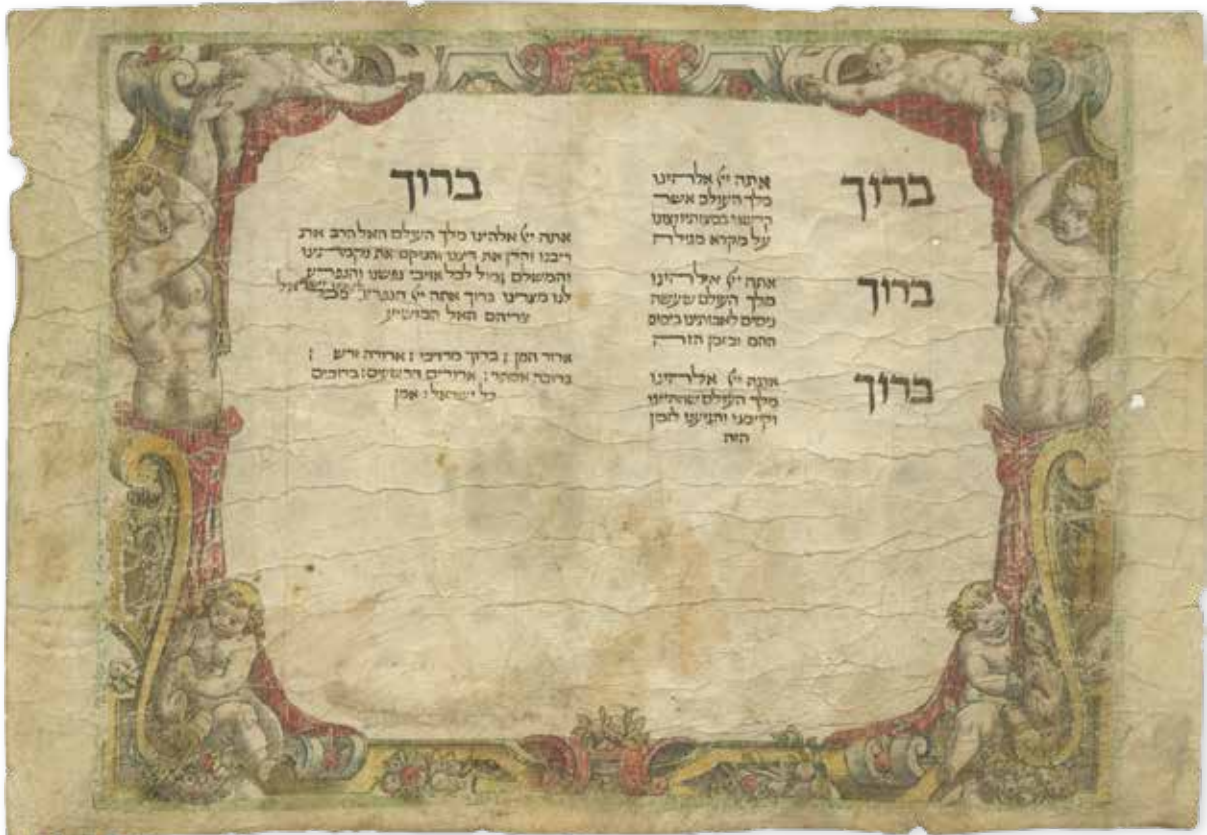 ברוך
אתה ייי אלהינו
מלך העולם אשר
קדשנו במצותיו וצונו
על מקרא מגילה
ברוך
אתה ייי אלהינו
מלך העולם שעשה
ניסים לאבותינו בימים
ההם ובזמן הזה
ברוך
אתה ייי אלהינו
מלך העולם שהחיינו
וקיימנו והגיענו לזמן
הזה
ברוך
אתה ייי אלהינו מלך העולם האל הרב את
ריבנו והדן את דיננו והנוקם את נקמתינו
והמשלם גמול לכל אויבי נפשנו והנפרע
לנו מצרינו ברוך אתה ייי הנפרע לעמו ישראל מכל
צריהם האל המושיע
ארור המן : ברוך מרדכי : ארורה זרש :
ברוכה אסתר : ארורים הרשעים : ברוכים
כל ישראל : אמן